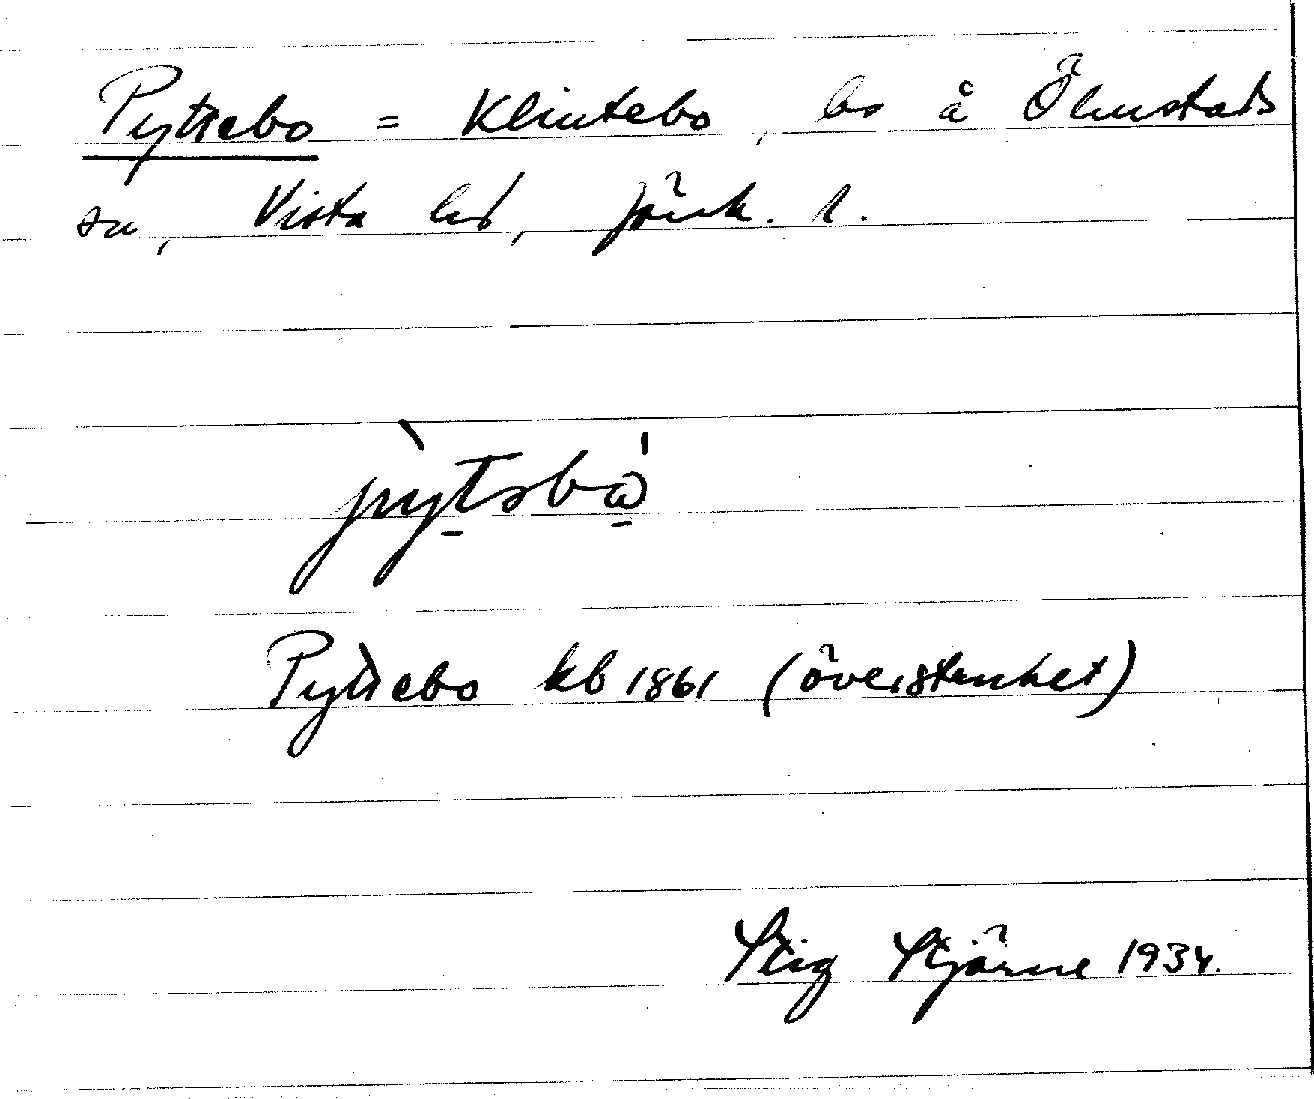 Pyttebo = Klintebo, bs å Ölmstads
sn, Vista hd, Jönk. l.
pỳtsbò
Pyttebo kb 1861 (överstruket)
Stig Stjärne 1934.